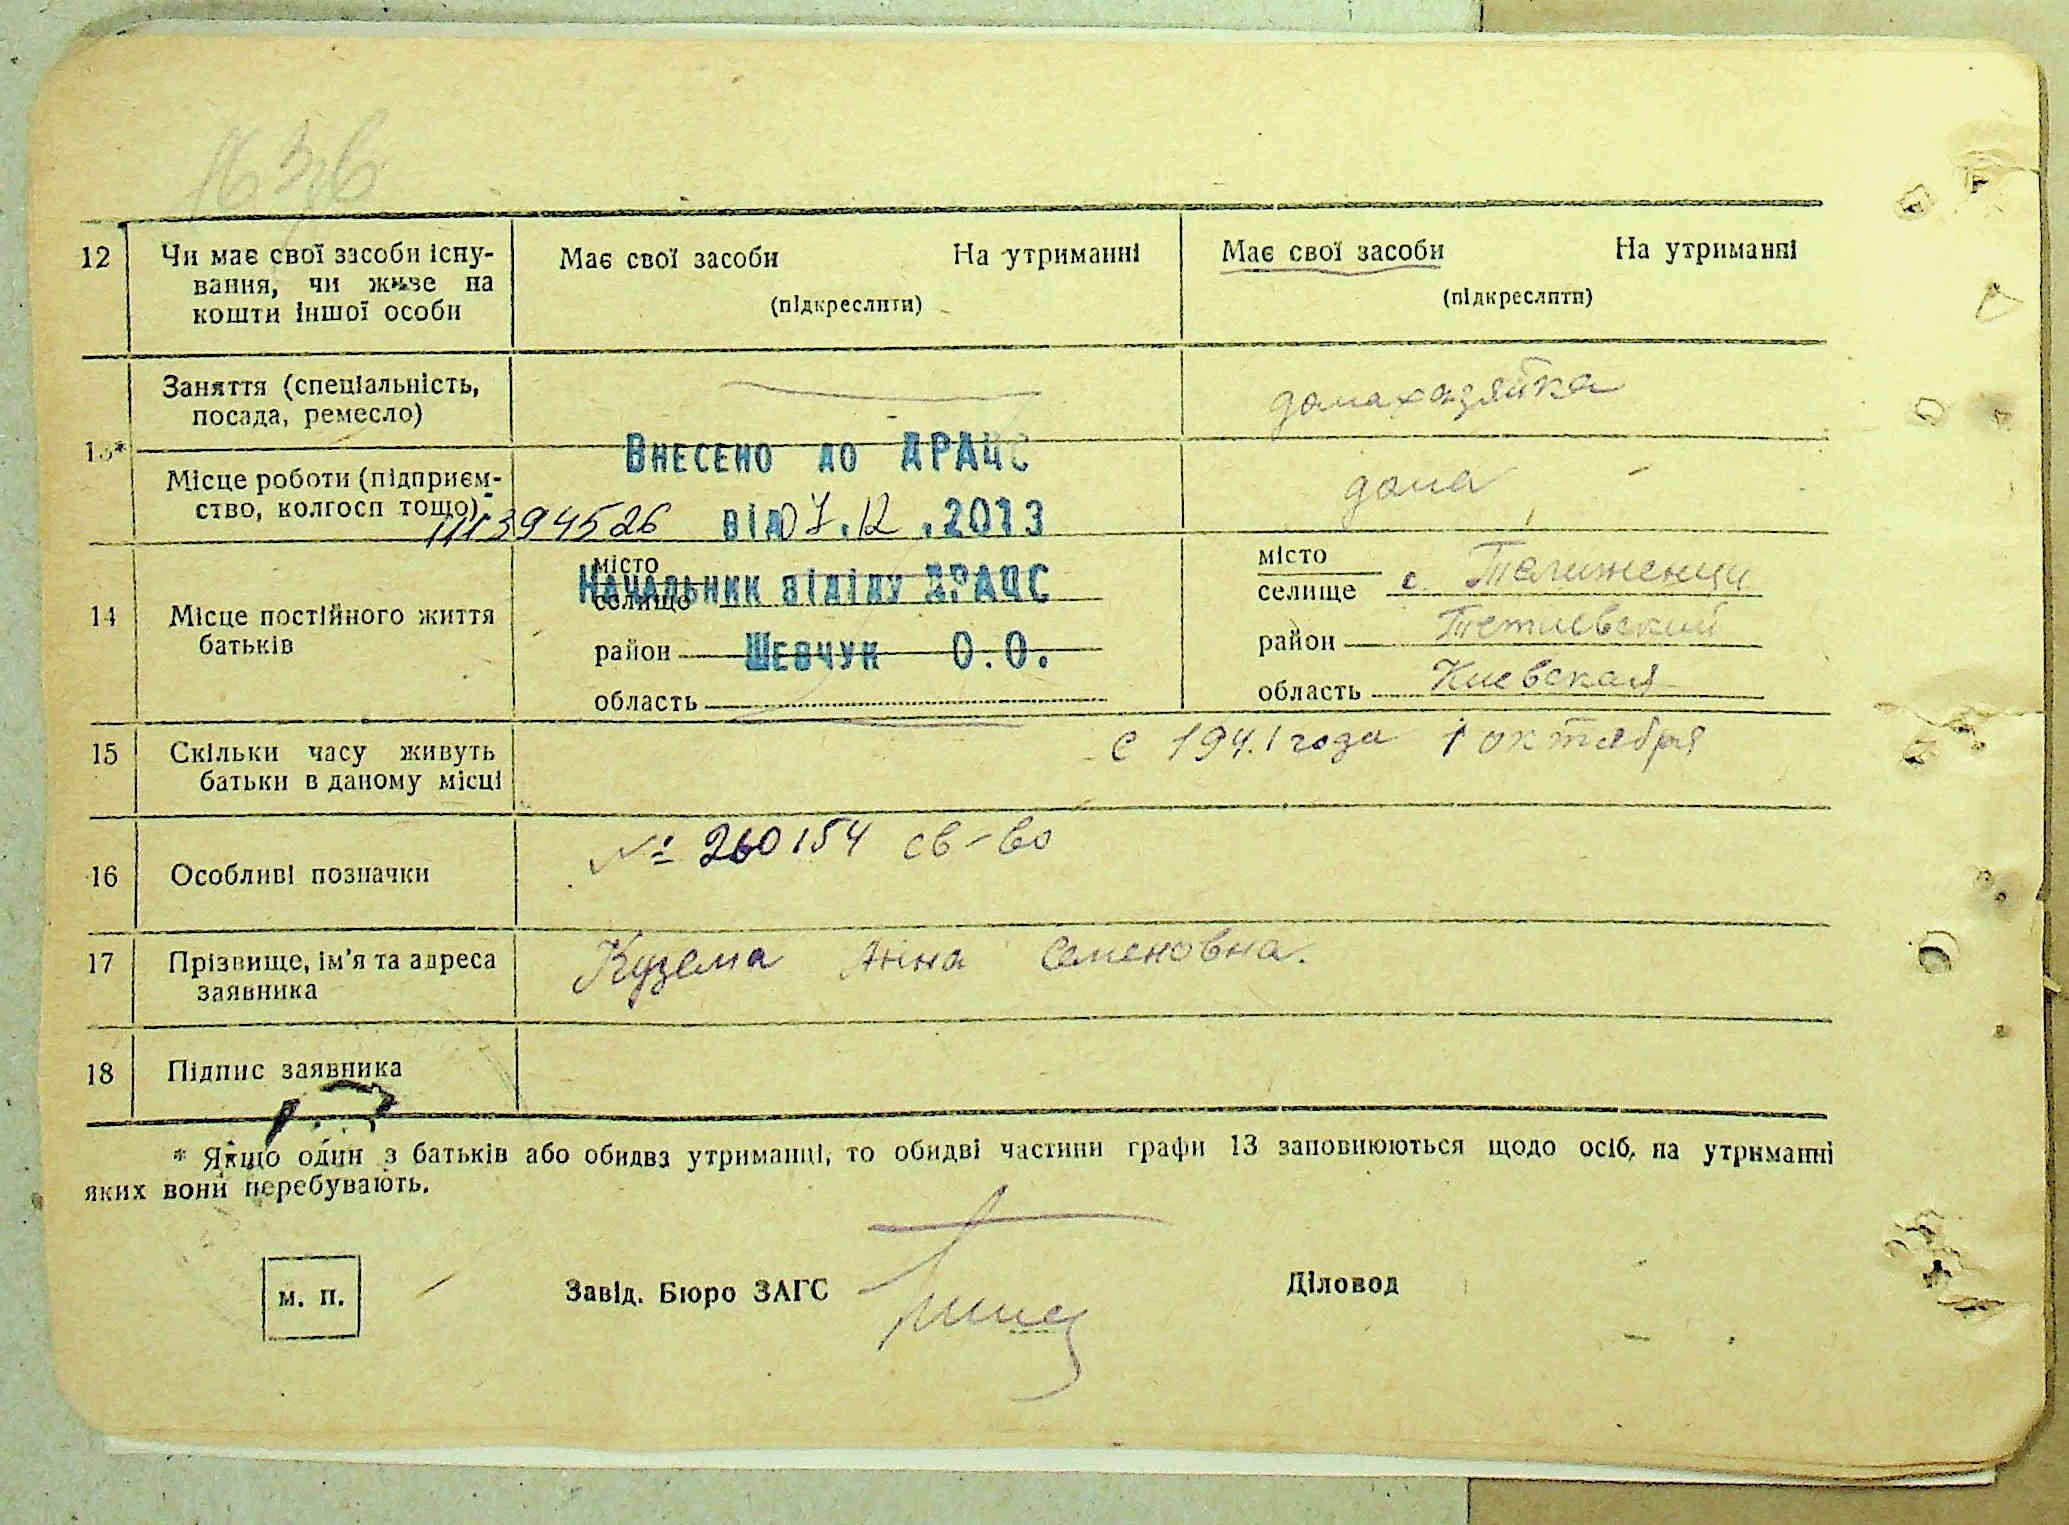 12 Чи має свої засоби існу-
вання, чи живе на
кошти іншої особи
Має свої засоби На утриманні
(підкреслити)
Має свої засоби На утриманні
(підкреслити)
13*
Заняття (спеціальність,
посада, ремесло)
домахазяйка
Місце роботи (підприєм-
ство, колгосп тощо)
дома
Внесено до ДРАЦС
394526 від 07.12.2013
Начальник відділу ДРАЦС
Шевчук О.О.
14 Місце постійного життя
батьків
місто
селище
район
область
місто
селище с. Телиженци
район Тетиевский
область Киевская
15 Скільки часу живуть
батьки в даному місці
с 1941 года 1 октября
16 Особливі позначки
№ 260154 св-во
17 Прізвище, ім'я та адреса
заявника
Кузема Анна Семеновна.
18 Підпис заявника
* Якщо один з батьків або обидва утриманці, то обидві частини графи 13 заповнюються щодо осіб, на утриманні
яких вони перебувають.
м. п.
Завід. Бюро ЗАГС
Діловод